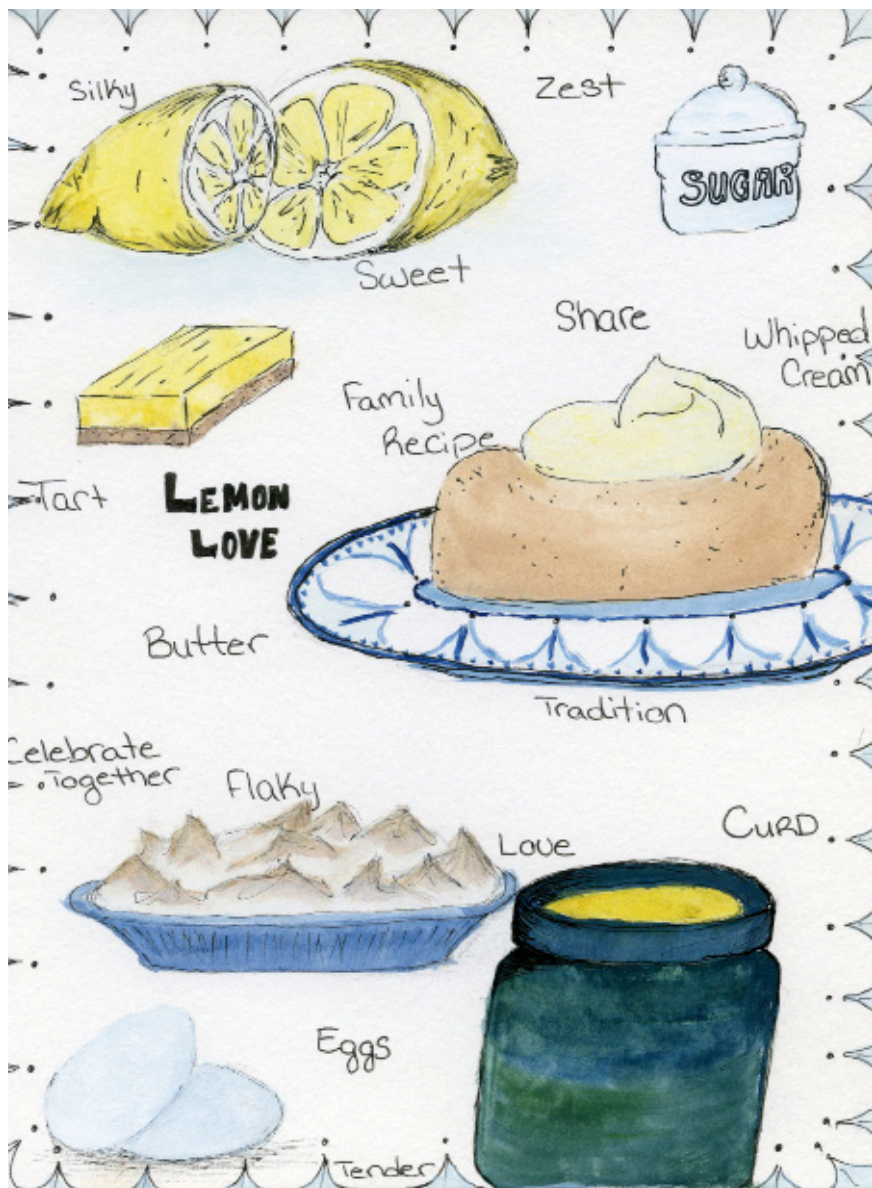 Silky
Zest
SUGAR
Sweet
Share
Whipped
Cream
Family
Recipe
Tart
LEMON
LOVE
Butter
Tradition
Celebrate
Together
Flaky
Love
CURD
Eggs
Tender